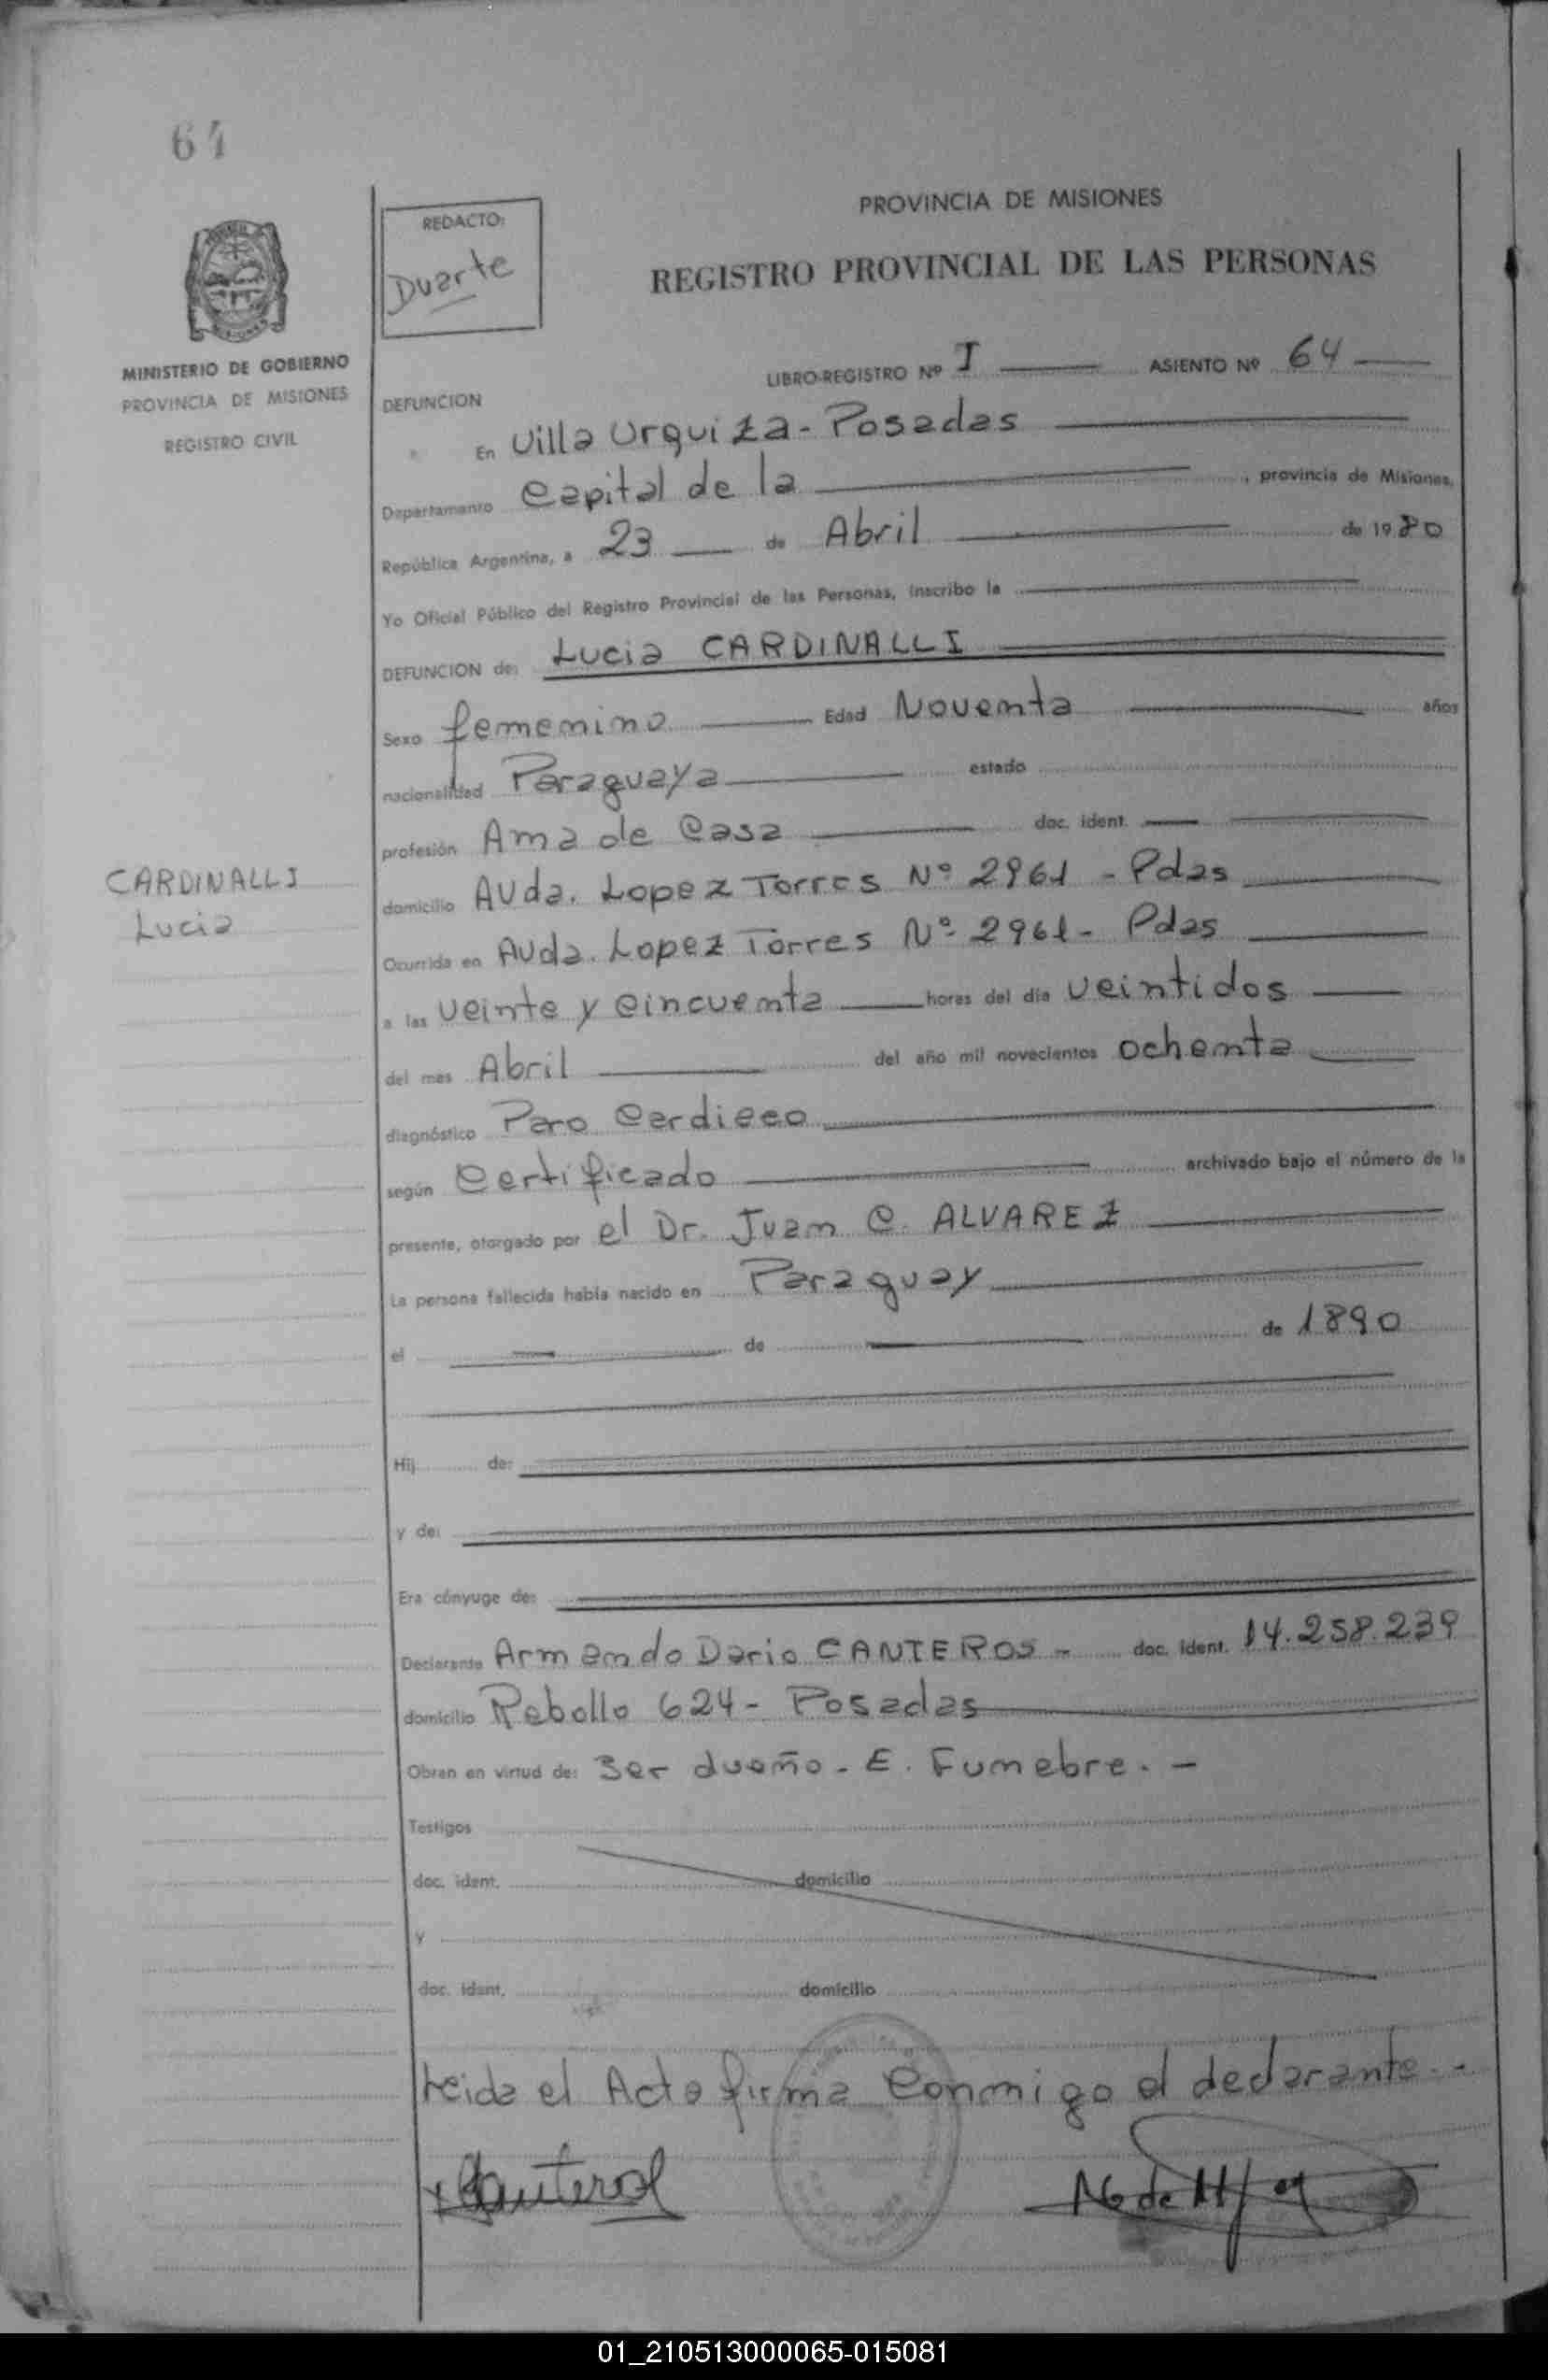 64
PROVINCIA DE MISIONES
REDACTO:
Duarte
REGISTRO PROVINCIAL DE LAS PERSONAS
MINISTERIO DE GOBIERNO
PROVINCIA DE MISIONES
REGISTRO CIVIL
LIBRO-REGISTRO Nº I ASIENTO Nº 64
DEFUNCION
En Villa Urquiza - Posadas
Departamento Capital de la , provincia de Misiones,
República Argentina, a 23 de Abril de 1980
Yo Oficial Público del Registro Provincial de las Personas, inscribo la
DEFUNCION de: Lucia CARDINALLI
Sexo femenino Edad Noventa años
nacionalidad Paraguaya estado
profesión Ama de Casa doc. ident.
CARDINALLI
Lucia
domicilio Avda. Lopez Torres Nº 2961 - Pdas
Ocurrida en Avda. Lopez Torres Nº 2961 - Pdas
a las veinte y cincuenta horas del día veintidos
del mes Abril del año mil novecientos ochenta
diagnóstico Paro Cardieco
según Certificado archivado bajo el número de la
presente, otorgado por el Dr. Juan C. ALVAREZ
La persona fallecida había nacido en Paraguay
el de de 1890
Hij de:
y de:
Era cónyuge de:
Declarante Armando Dario CANTEROS - doc. ident. 14.258.239
domicilio Rebollo 624 - Posadas
Obran en virtud de: Ser dueño - E. Funebre. -
Testigos
doc. ident. domicilio
y
doc. ident. domicilio
Leida el Acta firma conmigo el declarante. -
Canteros
01_210513000065-015081